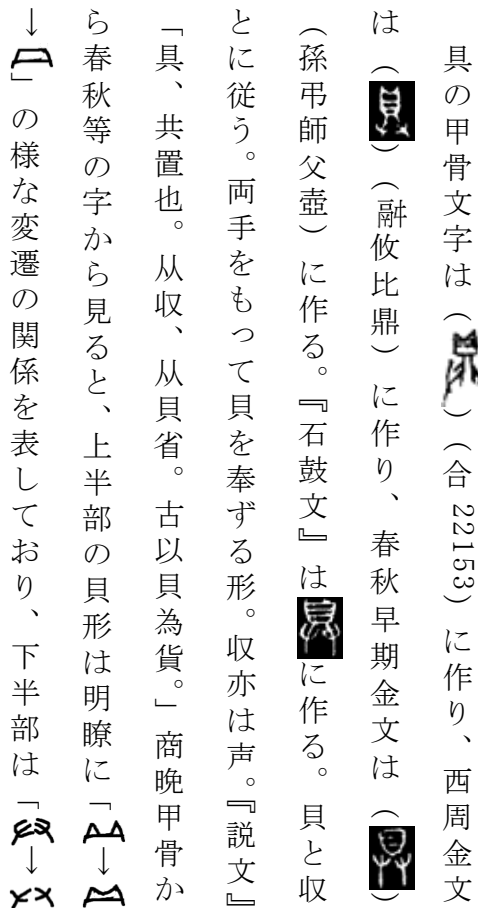 具の甲骨文字は（）（合 22153）に作り、西周金文
は（）（融攸比鼎）に作り、春秋早期金文は（）
（孫弔師父壺）に作る。『石鼓文』はに作る。貝と収
とに従う。両手をもって貝を奉ずる形。収亦は声。『説文』
「具、共置也。从収、从貝省。古以貝為貨。」商晩甲骨か
ら春秋等の字から見ると、上半部の貝形は明瞭に「→
→」の様な変遷の関係を表しており、下半部は「→